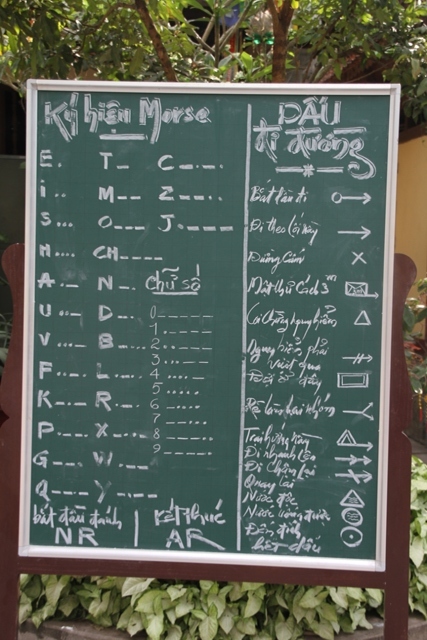 Ký hiệu Morse
E .
T _
C _ . _ .
i ..
M _ _
Z _ _ . .
S ...
O _ _ _
J . _ _ _
H ....
CH _ _ _ _
A . _
N _ .
chữ số
U .. _
D _ ..
0 _ _ _ _ _
V ... _
B _ ...
1 . _ _ _ _
2 .. _ _ _
F .. _ .
L . _ ..
3 ... _ _
4 .... _
K _ . _
R . _ .
5 .....
6 _ ....
P . _ _ .
X _ .. _
7 _ _ ...
8 _ _ _ ..
G _ _ .
W . _ _
9 _ _ _ _ .
Q _ _ . _
Y _ . _ _
bắt đầu đánh
NR
kết thúc
AR
DẤU
đi đường
Bắt đầu đi
Đi theo lối này
Đường Cấm
Mật thư Cách 3m
Coi Chừng nguy hiểm
Nguy hiểm phải
vượt qua
Đợi ở đây
Trại hướng này
Đi nhanh lên
Đi Chậm lại
Quay lại
Nước độc
Nước uống được
Đến đích
hết dấu